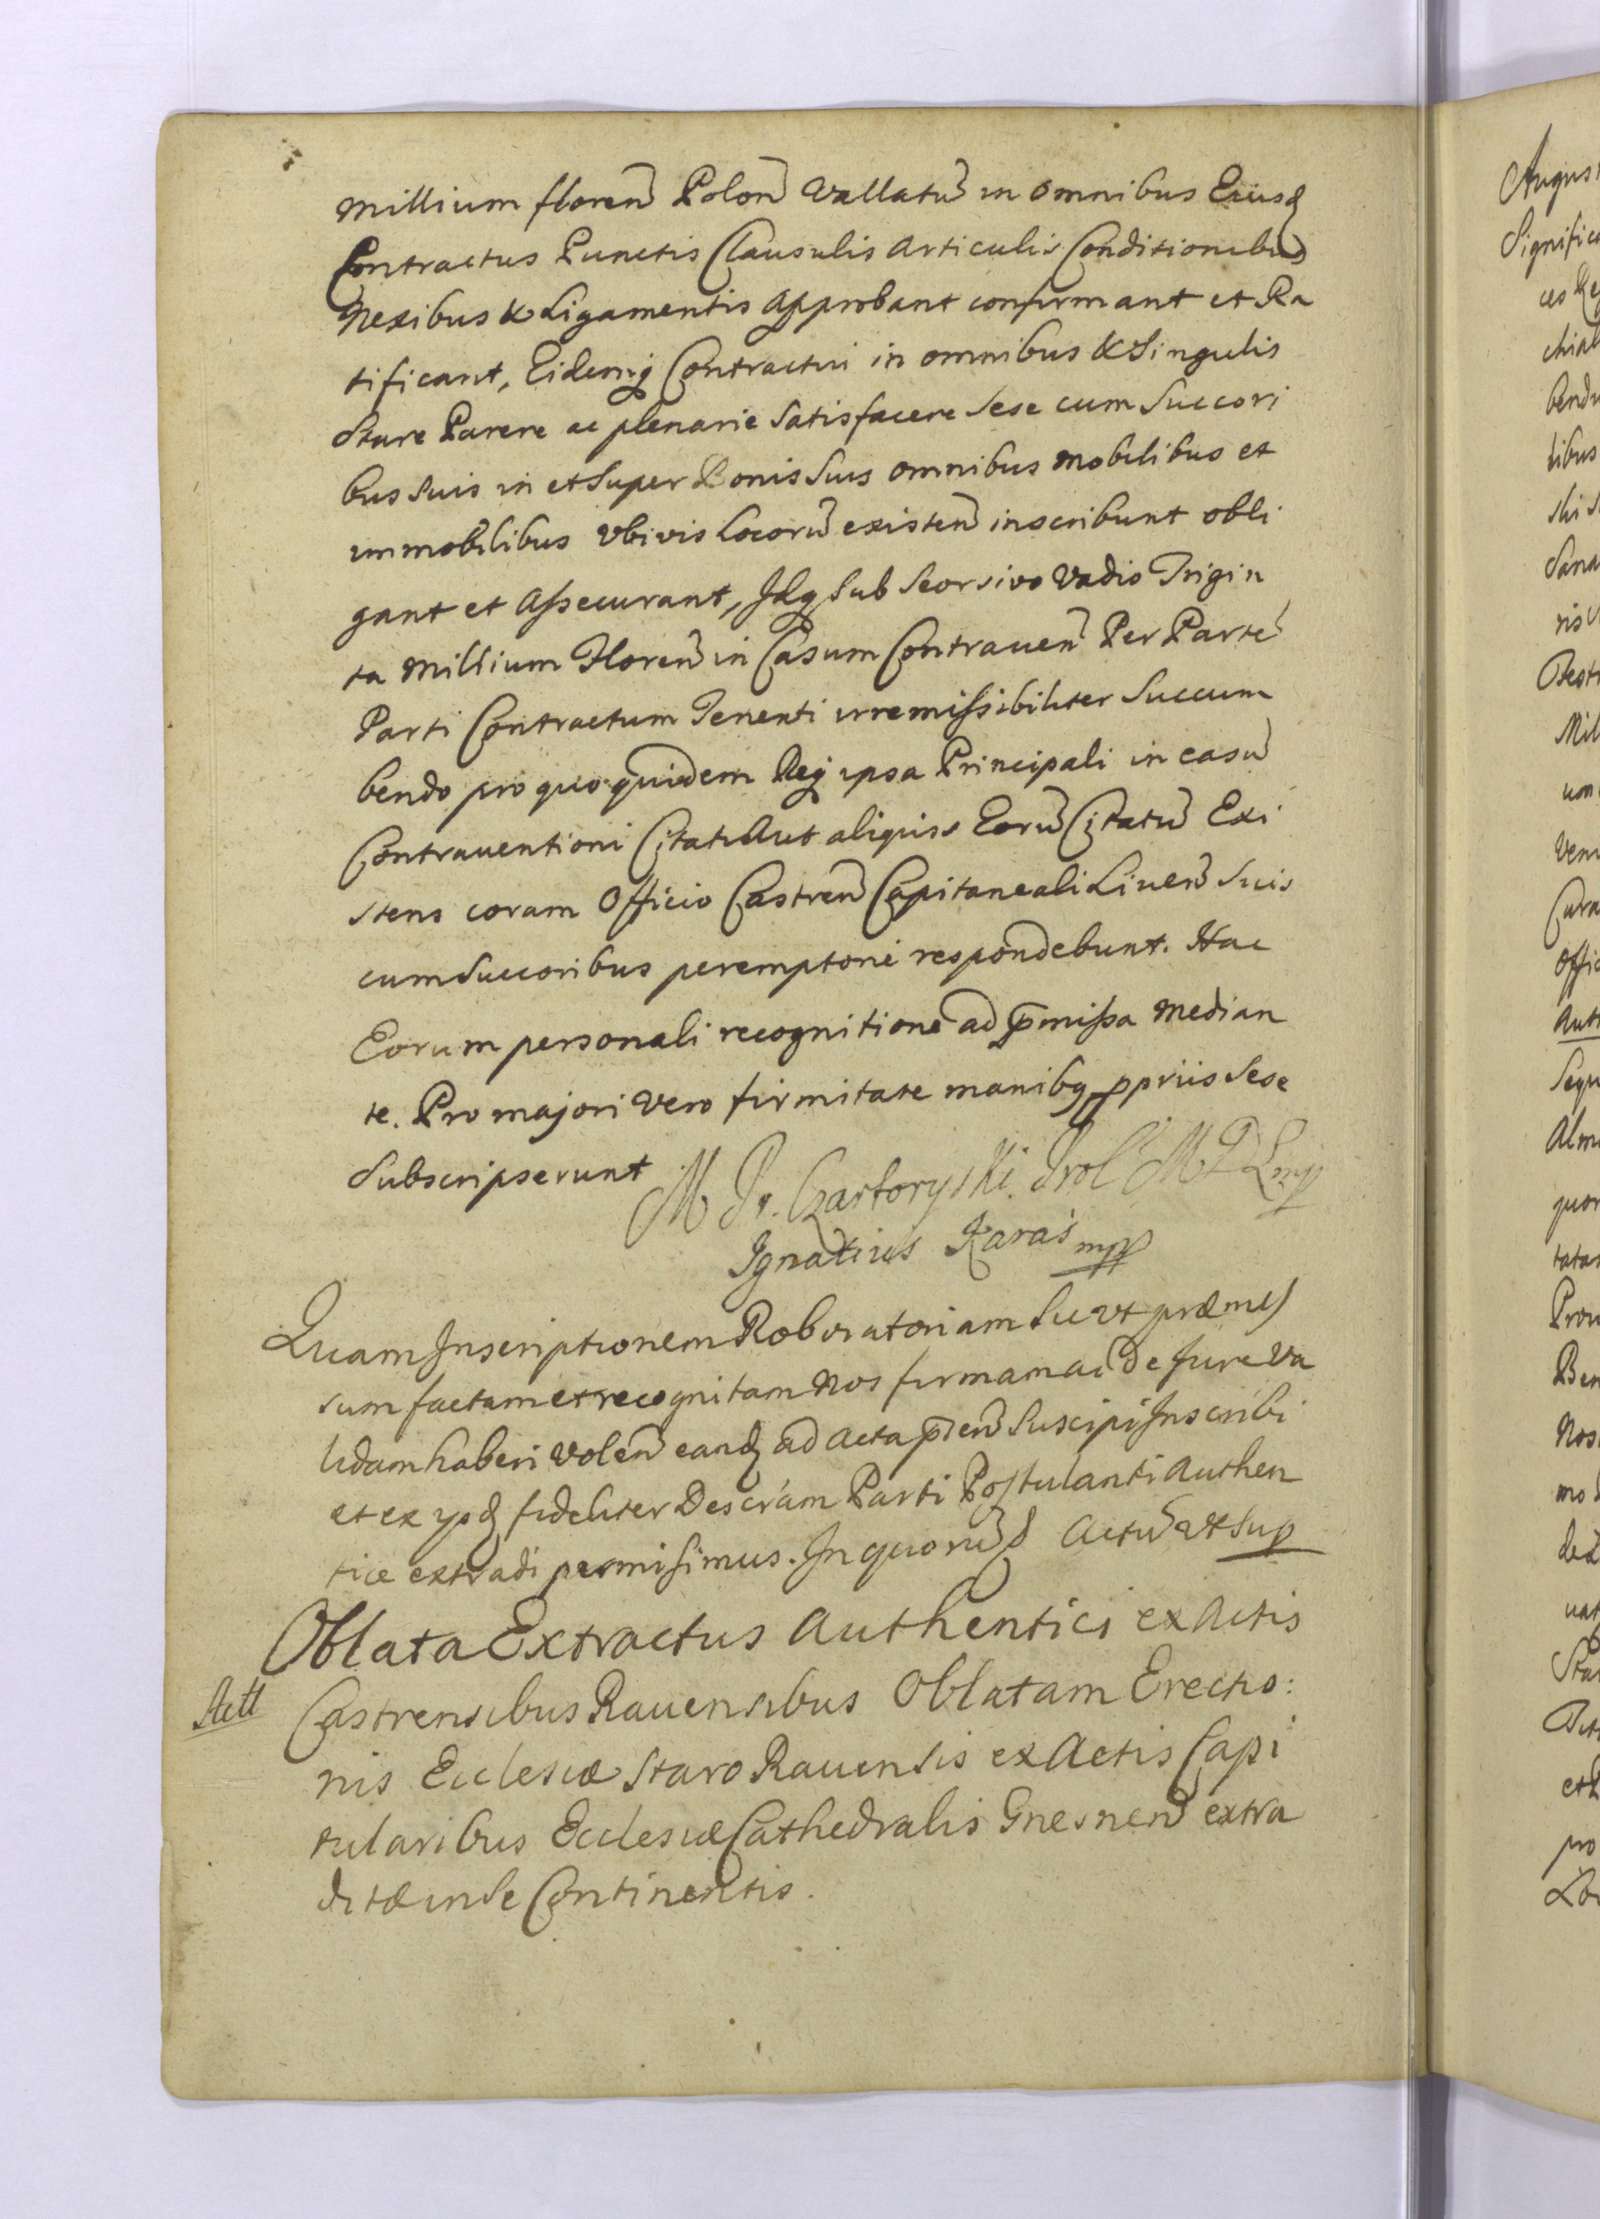 millium floren Polon Vallatu in omnibus Eiusd
Contractus Punctis Clausulis Articulis Conditionibus
Nexibus & Ligamentis Approbant confirmant et Ra
tificant, Eidemq Contractui in omnibus & Singulis
Stare Parere ac plenarie Satisfacere Sese cum Succori
bus Suis in et Super Bonis Suis omnibus mobilibus et
immobilibus Vbivis Locoru existen inscribunt obli
gant et Assecurant, Idq Sub Seorsivo Vadio Trigin
ta millium Floren in Casum Contrauen Per Parte
Parti Contractum Tenenti irremissibiliter Succum
bendo pro quo quidem Req ipsa Principali in casu
Contrauentioni Citati Aut aliquis Eoru Citatu Exi
stens coram Officio Castren Capitaneali Liuen Suis
cum Succoribus peremptorie respondebunt. Hac
Eorum personali recognitione ad pmissa median
te. Pro majori Vero firmitate manibq ppriis Sese
Subscripserunt M Pr. Czartoryski. Stol M D L mpp
Ignatius Karaś mpp
Quam Inscriptionem Roboratoriam Sic vt præmis
sum factam et recognitam Nos firmam ac De Jure Va
lidam haberi Volen eand ad Acta pñ Suscipi Inscribi
et ex ysd fideliter Descram Parti Postulanti Authen
tice extradi permisimus. In quoru d Actu vt Sup
Oblata Extractus Authentici ex Actis
Castrensibus Rauensibus Oblatam Erectio:
nis Ecclesiæ Staro Rauensis ex Actis Capi
tularibus Ecclesiæ Cathedralis Gnesnen extra
ditæ in Se Continentis.